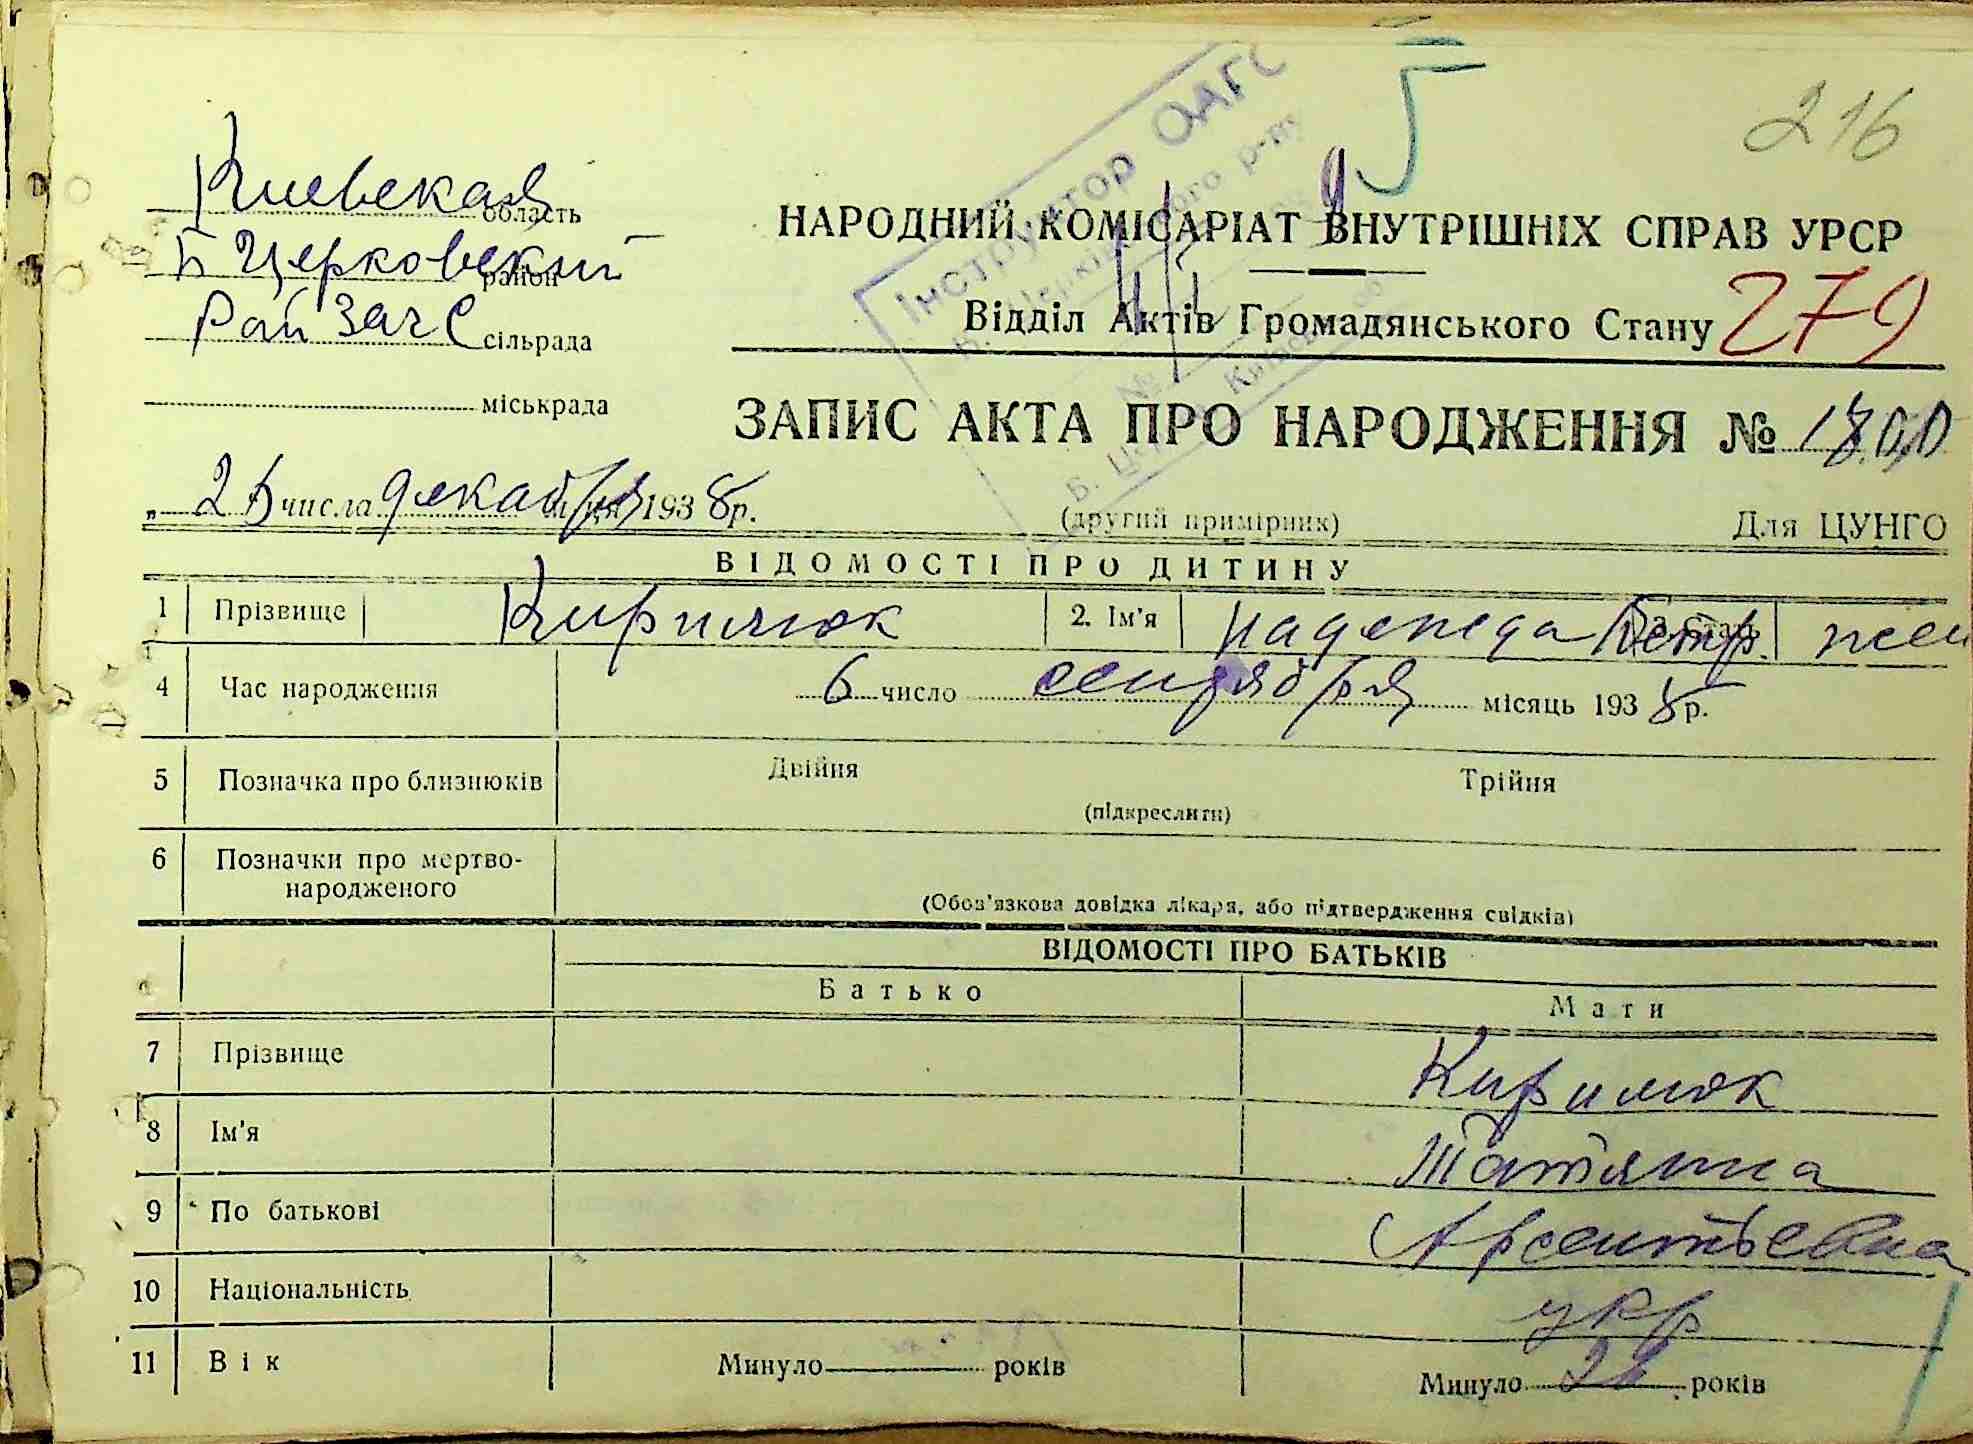 216
Інструктор ОАГС
Киевская область
Б Церковский район
Рай Загс сільрада
міськрада
НАРОДНИЙ КОМІСАРІАТ ВНУТРІШНІХ СПРАВ УРСР
Відділ Актів Громадянського Стану 279
ЗАПИС АКТА ПРО НАРОДЖЕННЯ № 1800
числа декабря 1938 р.
(другий примірник)
Для ЦУНГО
ВІДОМОСТІ ПРО ДИТИНУ
1 Прізвище Кирилюк 2. Ім'я надежда Петр. 3. Стать жен
4 Час народження 6 число сентября місяць 1938 р.
5 Позначка про близнюків Двійня Трійня
(підкреслити)
6 Позначки про мертво-
народженого
(Обов'язкова довідка лікаря, або підтвердження свідків)
ВІДОМОСТІ ПРО БАТЬКІВ
Батько Мати
7 Прізвище Кирилюк
8 Ім'я Татяна
9 По батькові Арсентьевна
10 Національність укр
11 Вік Минуло років Минуло років